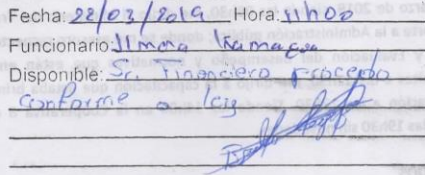 Fecha: 22/03/2019 Hora: 11h00
Funcionario: Jimena
Disponible: Sr. Financiero proceda
conforme a ley